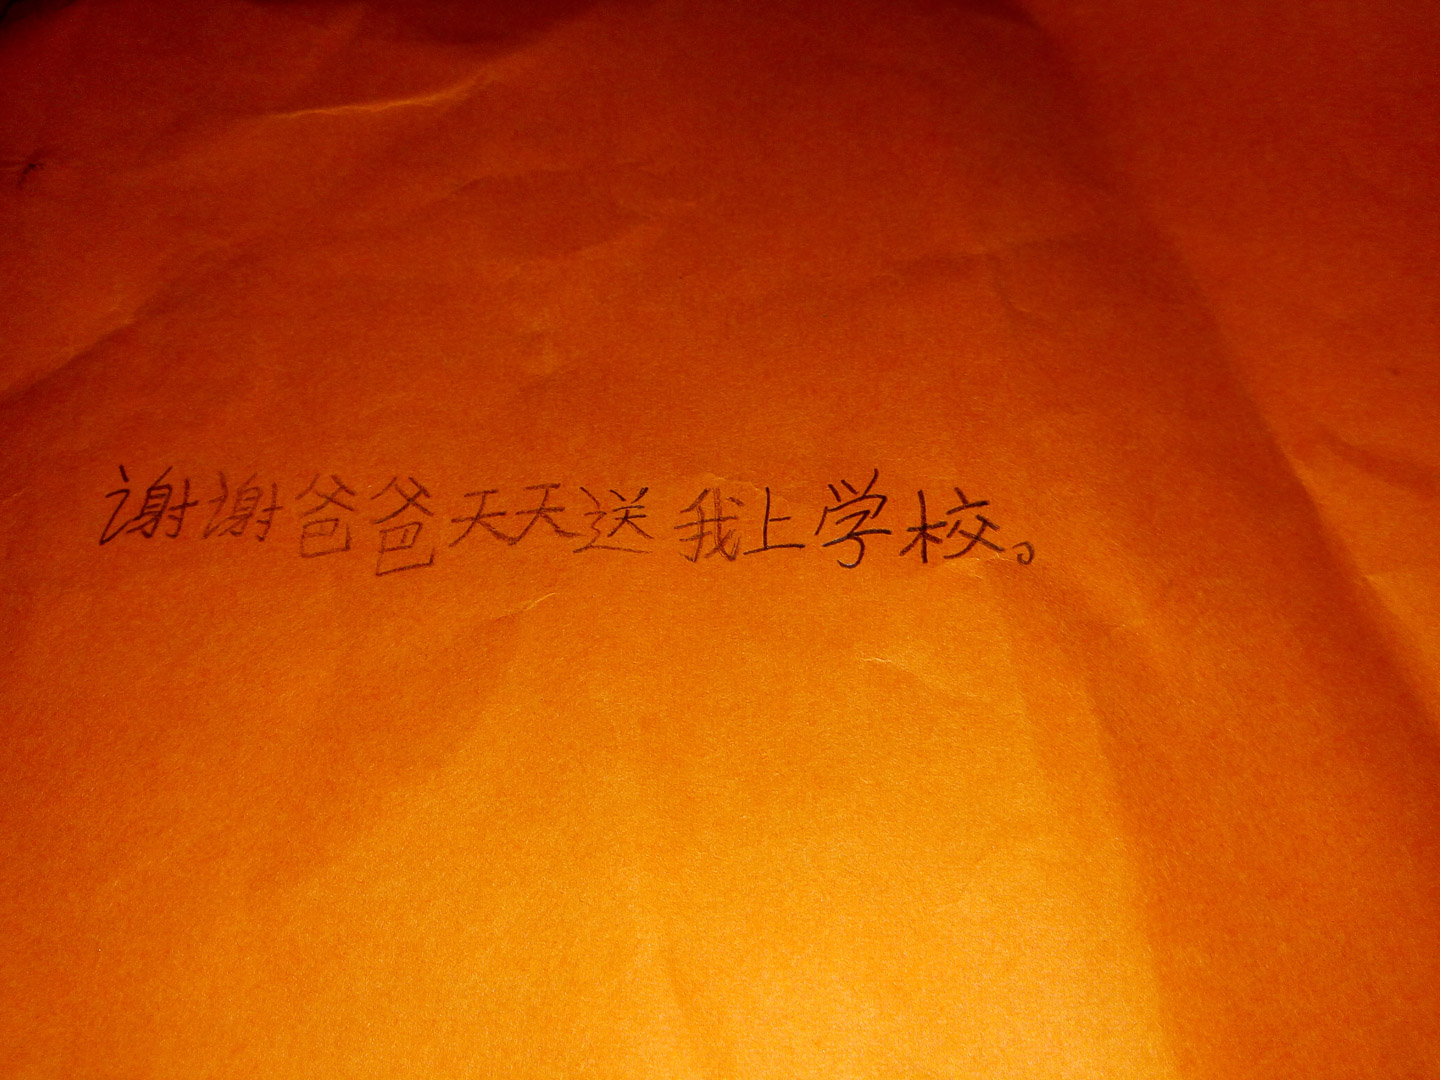 谢谢爸爸天天送我上学校。